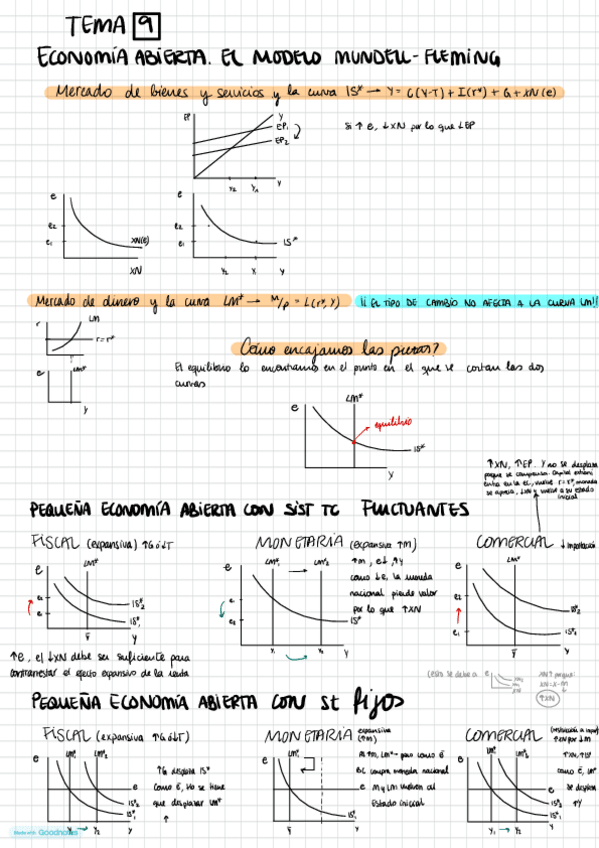 TEMA 9
ECONOMÍA ABIERTA. EL MODELO MUNDELL-FLEMING
Mercado de bienes y servicios y la curva IS* → Y = C(Y-T) + I(r*) + G + XN(e)
Si ↑ e, ↓XN por lo que ↓EP
EP
Y
EP1
EP2
Y2 Y1 Y
e
e2
e1
XN(e)
XN
e
e2
e1
IS*
Y2 Y
Mercado de dinero y la curva LM* → M/P = L(r*, Y)
¡¡ EL TIPO DE CAMBIO NO AFECTA A LA CURVA LM!!
r
LM
r=r*
e
LM*
Y
Cómo encajamos las piezas?
El equilibrio lo encontramos en el punto en el que se cortan las dos
curvas
e
LM*
equilibrio
IS*
Y
↑XN, ↑EP. Y no se desplaza
porque se compensa. Capital
entra en la ec, vuelve r=r*, moneda
se aprecia, ↓XN y vuelve a su estado
inicial
PEQUEÑA ECONOMÍA ABIERTA CON SIST TC FLUCTUANTES
FISCAL (expansiva) ↑G ó ↓T
e
LM*
e2
e1
IS*2
IS*1
Y
↑e, el ↓XN debe ser suficiente para
contrarrestar el efecto expansivo de la
MONETARIA (expansiva ↑M)
e
LM*1 → LM*2
e1
e2
IS*
Y1 Y2 Y
↑M, e↓, ↑Y
como ↓e, la moneda
nacional pierde valor
por lo que ↑XN
COMERCIAL ↓ importación
e
LM*
e2
e1
IS*2
IS*1
Y
(esto se debe a
XN↑ porque:
XN = X - M
↑XN
PEQUEÑA ECONOMÍA ABIERTA CON st fijos
FISCAL (expansiva ↑G ó ↓T)
e
LM*1 LM*2
e
IS*2
IS*1
Y1 → Y2 Y
↑G desplaza IS*
como ē, no se tiene
que desplazar LM*
↑
MONETARIA expansiva (↑M)
e
LM*
e
IS*1
Y
Al ↑M, LM* → pero como ē
BC compra moneda nacional
M y LM vuelven al
Estado inicial
COMERCIAL
↑XN por ↓M
e
LM*1 LM*2
e
IS*2
IS*1
Y1 → Y2 Y
↑XN, ↑IS*
como ē, LM*
se desplaza
↑Y
Made with Goodnotes